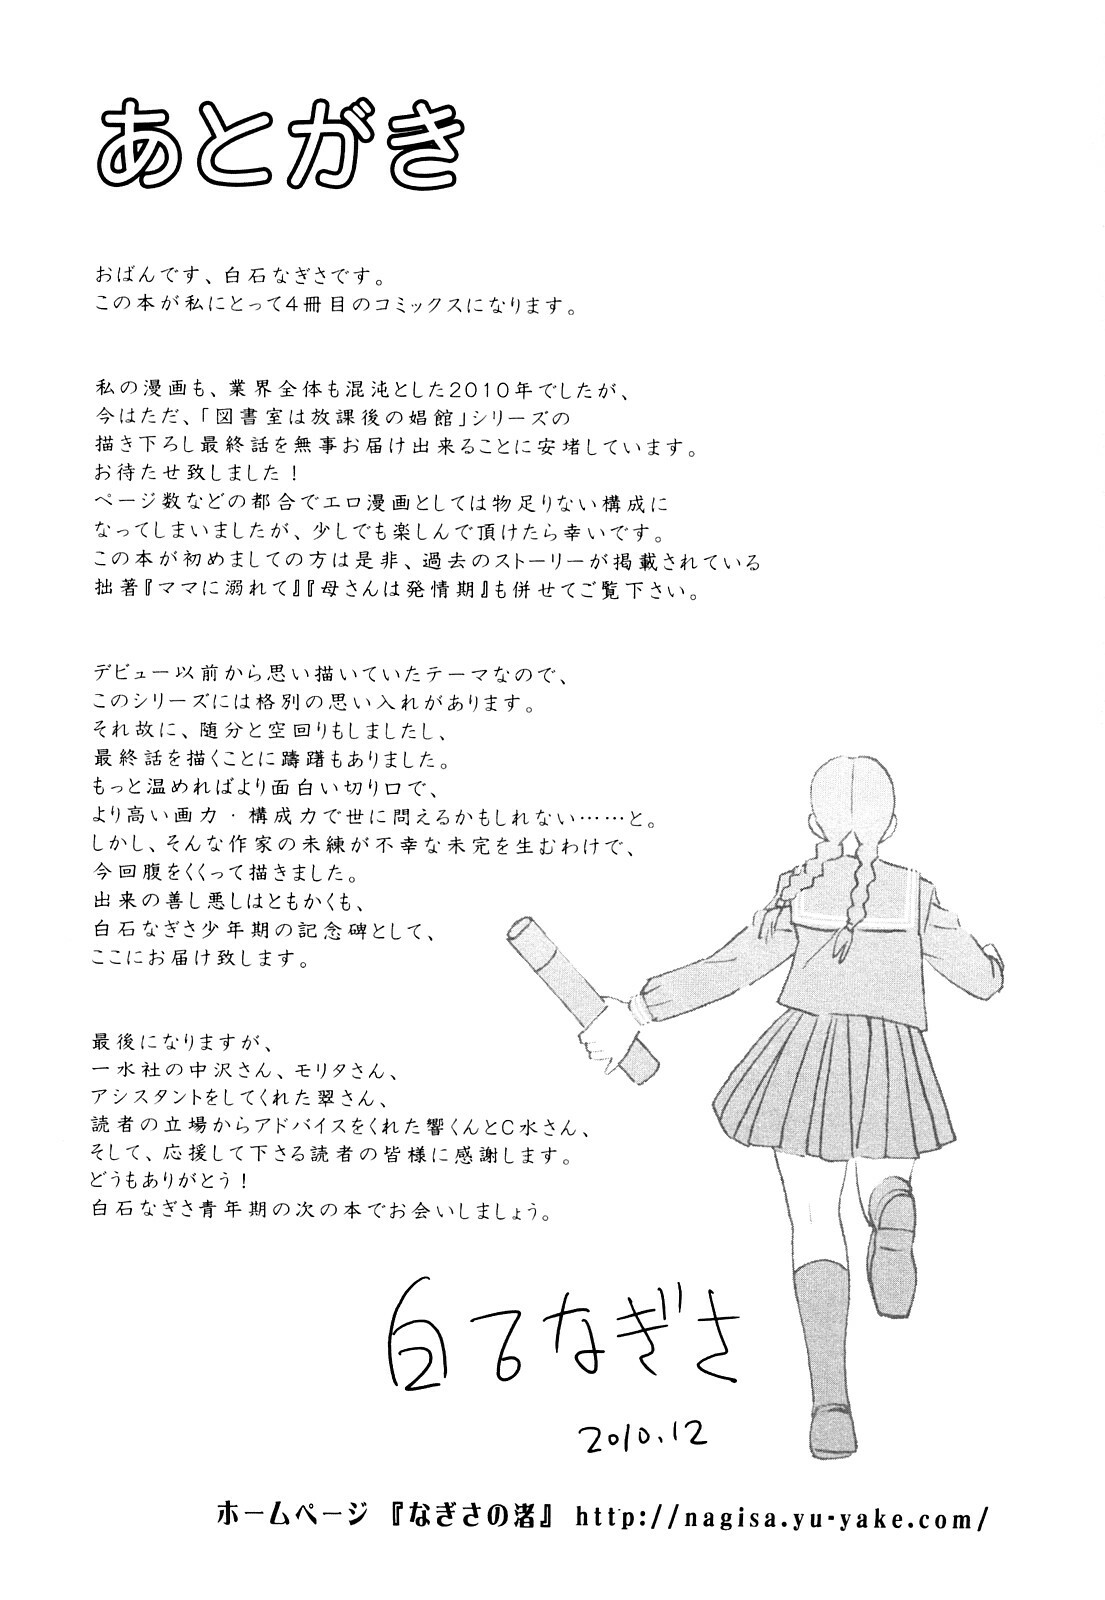 あとがき
おばんです、白石なぎさです。
この本が私にとって4冊目のコミックスになります。
私の漫画も、業界全体も混沌とした2010年でしたが、
今はただ、「図書室は放課後の娼館」シリーズの
描き下ろし最終話を無事お届け出来ることに安堵しています。
お待たせ致しました！
ページ数などの都合でエロ漫画としては物足りない構成に
なってしまいましたが、少しでも楽しんで頂けたら幸いです。
この本が初めましての方は是非、過去のストーリーが掲載されている
拙著『ママに溺れて』『母さんは発情期』も併せてご覧下さい。
デビュー以前から思い描いていたテーマなので、
このシリーズには格別の思い入れがあります。
それ故に、随分と空回りもしましたし、
最終話を描くことに躊躇もありました。
もっと温めればより面白い切り口で、
より高い画力・構成力で世に問えるかもしれない……と。
しかし、そんな作家の未練が不幸な未完を生むわけで、
今回腹をくくって描きました。
出来の善し悪しはともかくも、
白石なぎさ少年期の記念碑として、
ここにお届け致します。
最後になりますが、
一水社の中沢さん、モリタさん、
アシスタントをしてくれた翠さん、
読者の立場からアドバイスをくれた響くんとC水さん、
そして、応援して下さる読者の皆様に感謝します。
どうもありがとう！
白石なぎさ青年期の次の本でお会いしましょう。
白石なぎさ
2010.12
ホームページ 『なぎさの渚』 http://nagisa.yu-yake.com/